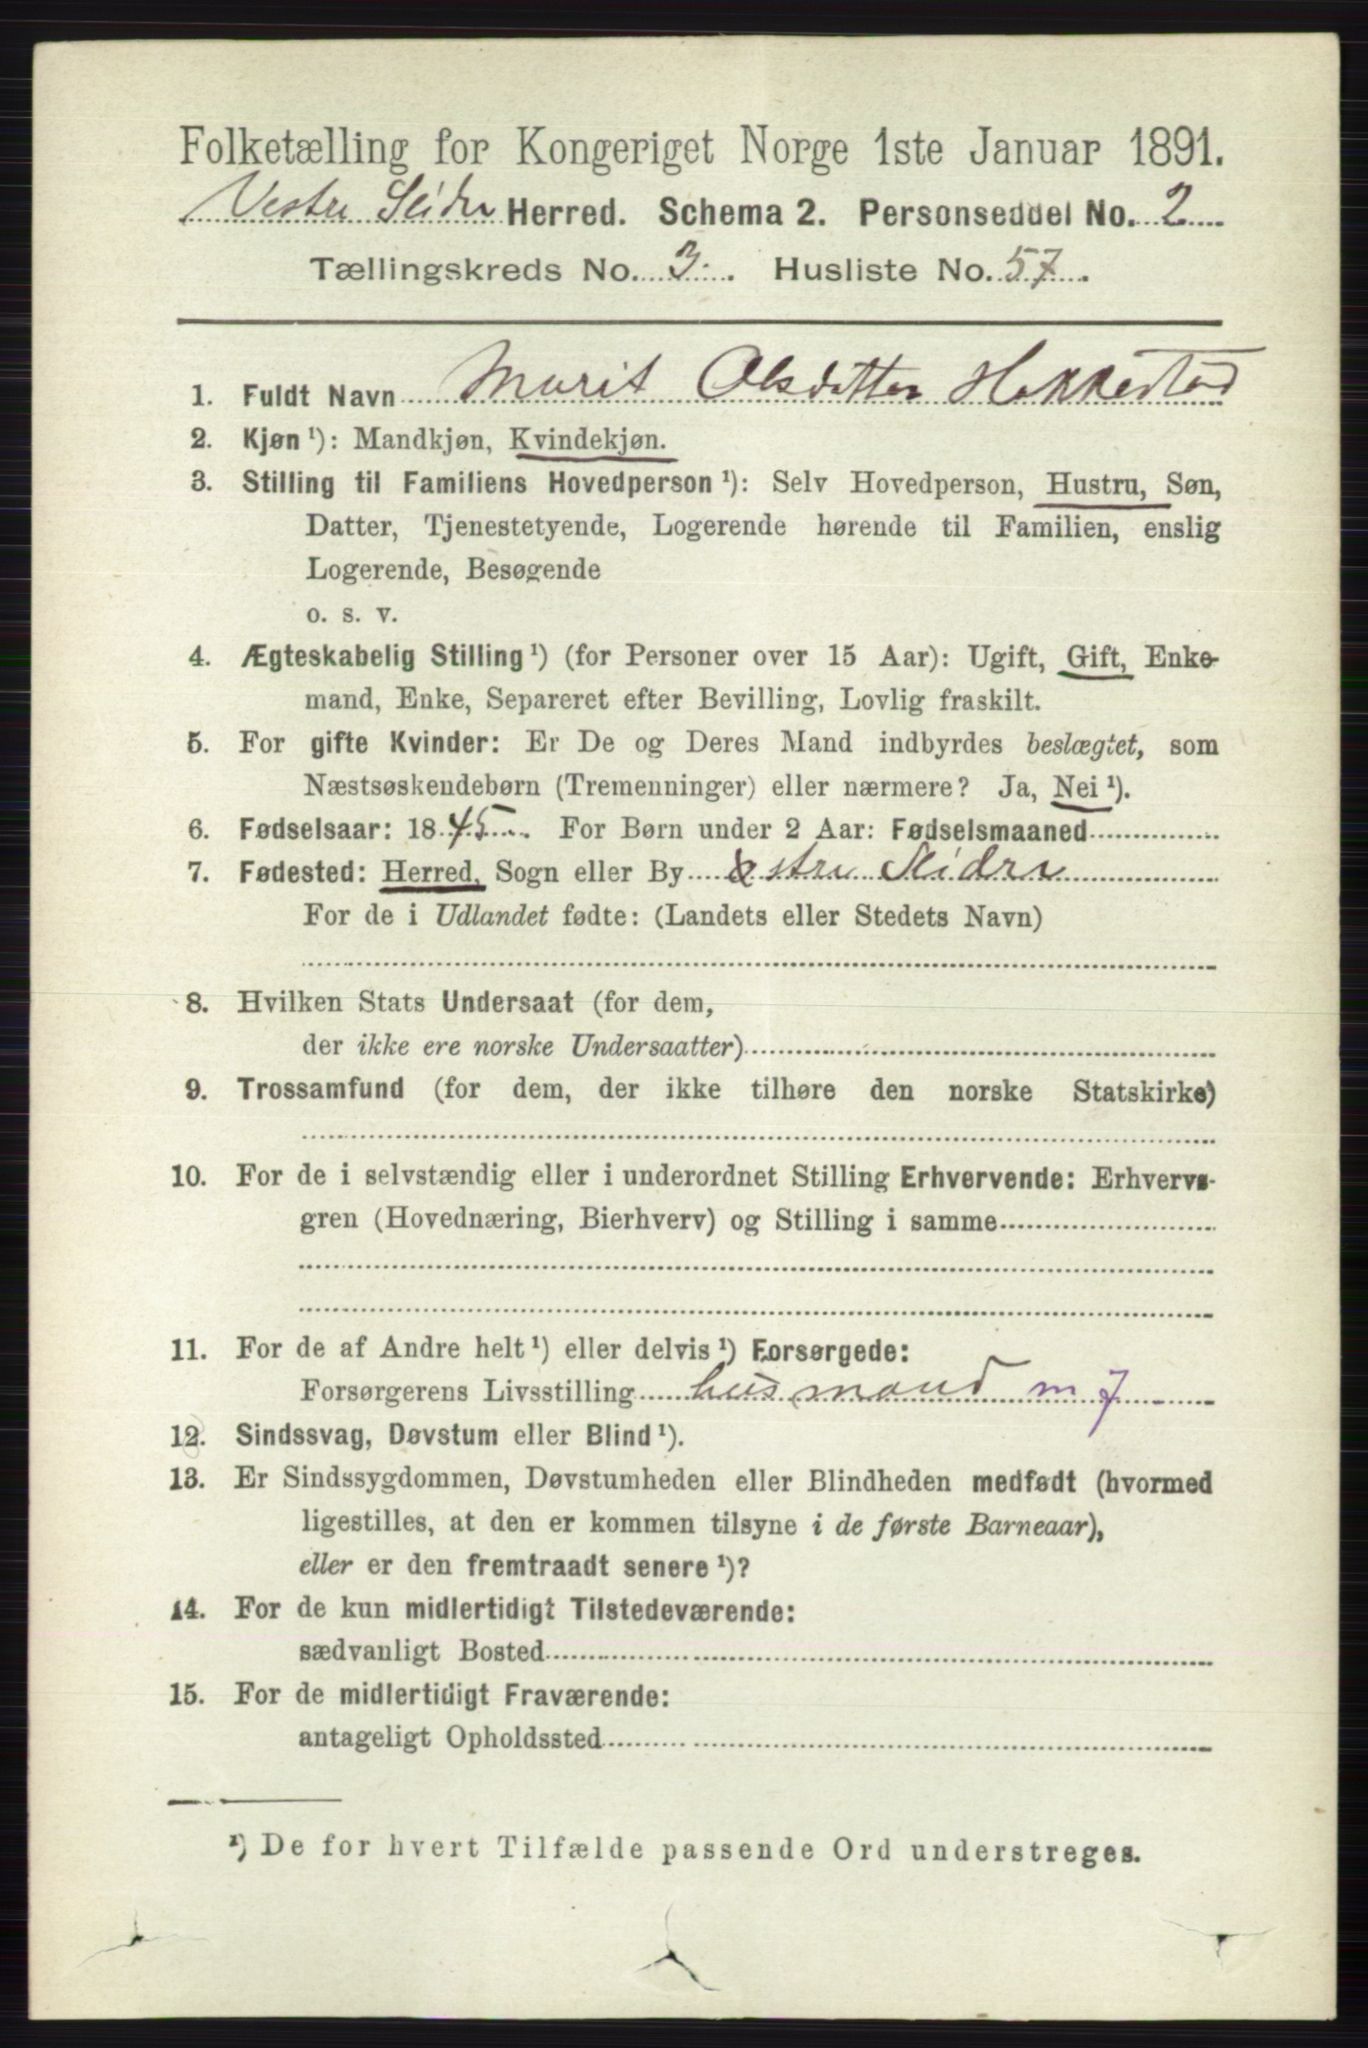 Folketælling for Kongeriget Norge 1ste Januar 1891.
Vestre Slidre Herred. Schema 2. Personseddel No. 2
Tællingskreds No. 3. Husliste No. 57.
1. Fuldt Navn Marit Olsdatter Hakkestad
2. Kjøn ¹): Mandkjøn, Kvindekjøn.
3. Stilling til Familiens Hovedperson ¹): Selv Hovedperson, Hustru, Søn,
Datter, Tjenestetyende, Logerende hørende til Familien, enslig
Logerende, Besøgende
o. s. v.
4. Ægteskabelig Stilling ¹) (for Personer over 15 Aar): Ugift, Gift, Enke-
mand, Enke, Separeret efter Bevilling, Lovlig fraskilt.
5. For gifte Kvinder: Er De og Deres Mand indbyrdes beslægtet, som
Næstsøskendebørn (Tremenninger) eller nærmere? Ja, Nei ¹).
6. Fødselsaar: 1845. For Børn under 2 Aar: Fødselsmaaned
7. Fødested: Herred, Sogn eller By Østre Slidre
For de i Udlandet fødte: (Landets eller Stedets Navn)
8. Hvilken Stats Undersaat (for dem,
der ikke ere norske Undersaatter)
9. Trossamfund (for dem, der ikke tilhøre den norske Statskirke)
10. For de i selvstændig eller i underordnet Stilling Erhvervende: Erhvervs-
gren (Hovednæring, Bierhverv) og Stilling i samme
11. For de af Andre helt ¹) eller delvis ¹) Forsørgede:
Forsørgerens Livsstilling husmand m 7
12. Sindssvag, Døvstum eller Blind ¹).
13. Er Sindssygdommen, Døvstumheden eller Blindheden medfødt (hvormed
ligestilles, at den er kommen tilsyne i de første Barneaar),
eller er den fremtraadt senere ¹)?
14. For de kun midlertidigt Tilstedeværende:
sædvanligt Bosted
15. For de midlertidigt Fraværende:
antageligt Opholdssted
¹) De for hvert Tilfælde passende Ord understreges.